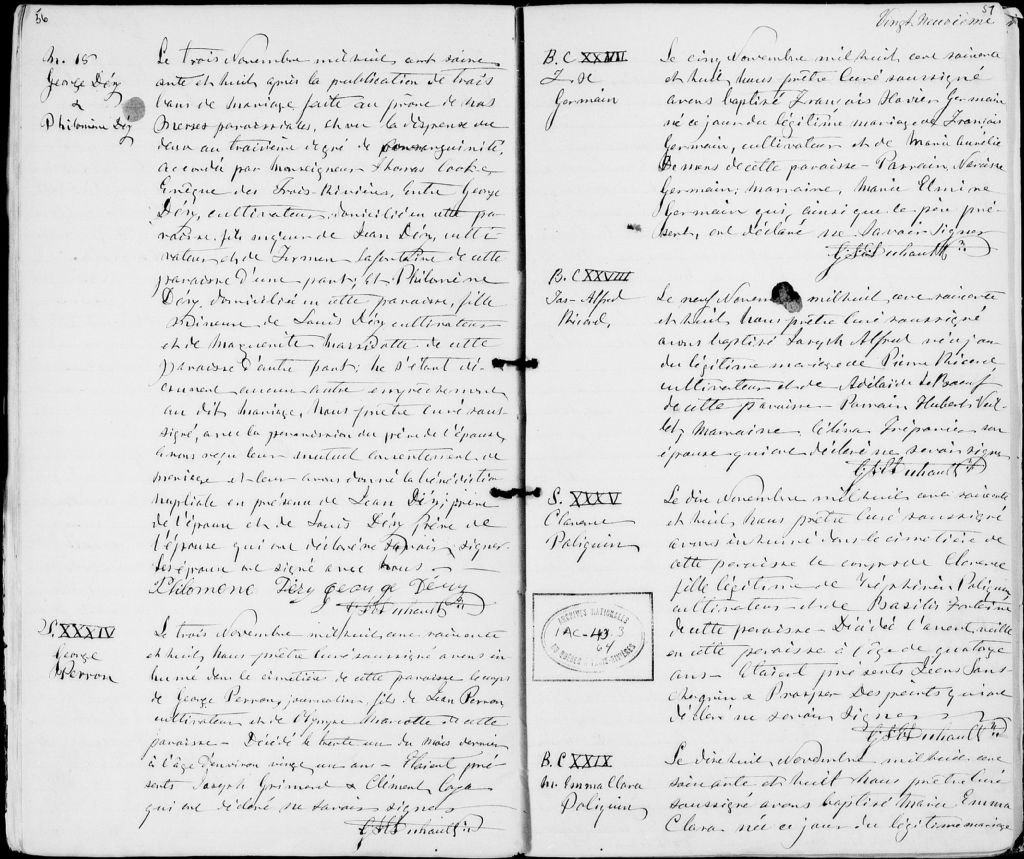 56
M. 18
George Déry
&
Philomène Déry
Le trois Novembre mil huit cent soix-
ante et huit après la publication de trois
bans de mariage faite au prône de nos
Messes paroissiales, et vu la dispense du
deux au troisième degré de consanguinité,
accordée par Monseigneur Thomas Cooke
Evêque des Trois-Rivières, Entre George
Déry, cultivateur, domicilié en cette pa-
roisse, fils majeur de Jean Déry, culti-
vateur et de Firmen Lafontaine de cette
paroisse d'une part; et Philomène
Déry, domiciliée en cette paroisse, fille
mineure de Louis Déry cultivateur
et de Marguerite Massicotte de cette
paroisse d'autre part; ne s'étant dé-
couvert aucun autre empêchement
au dit mariage, Nous prêtre curé sous-
signé, avec la permission du père de l'épouse,
avons reçu leur mutuel consentement de
mariage et leur avons donné la bénédiction
nuptiale en présence de Jean Déry, père
de l'époux et de Louis Déry frère de
l'épouse qui ont déclaré ne savoir signer.
Les époux ont signé avec nous.
Philomene Déry George Déry
S. XXXIV
George
Perron
Le trois Novembre mil huit cent soixante
et huit, nous prêtre curé soussigné avons in-
humé dans le cimetière de cette paroisse le corps
de George Perron, journalier, fils de Jean Perron
cultivateur et de Olympe Marcotte de cette
paroisse - Décédé le trente un du mois dernier
à l'âge d'environ vingt un ans - Etaient pré-
sents Joseph Grimard & Clément
qui ont déclaré ne savoir signer
57
Vingt Neuvième
B. C XXVII
F. X
Germain
Le cinq Novembre mil huit cent soixante
et huit, nous prêtre curé soussigné
avons baptisé François Xavier Germain
né ce jour du légitime mariage de François
Germain, cultivateur et de Marie Aurélie
de cette paroisse - Parrain, Narcisse
Germain; marraine, Marie Elmire
Germain qui, ainsi que le père pré-
sent, ont déclaré ne savoir signer
B. C XXVIII
Jos-Alfred
Ricard,
Le neuf Novembre mil huit cent soixante
et huit, nous prêtre curé soussigné
avons baptisé Joseph Alfred né ce jour
du légitime mariage de Pierre Ricard
cultivateur et de Adélaïde LeBoeuf
de cette paroisse - Parrain Hubert Veil-
let, Marraine Célina Trépanier son
épouse qui ont déclaré ne savoir signer.
S. XXXV
Clarence
Poliquin
Le dix Novembre mil huit cent soixante
et huit, nous prêtre curé soussigné
avons inhumé dans le cimetière de
cette paroisse le corps de Clarence
fille légitime de Zéphirin Poliquin
cultivateur et de Basilis Fontaine
de cette paroisse - Décédé l'avant veille
en cette paroisse à l'âge de quatorze
ans - Etaient présents Léon Sans-
chagrin & Prosper qui ont
déclaré ne savoir signer
ARCHIVES NATIONALES
1 AC-43 3
64
DU QUÉBEC À TROIS-RIVIÈRES
B. C XXIX
M. Emma Clara
Poliquin
Le dix huit Novembre mil huit cent
soixante et huit nous prêtre curé
soussigné avons baptisé Marie Emma
Clara née ce jour du légitime mariage